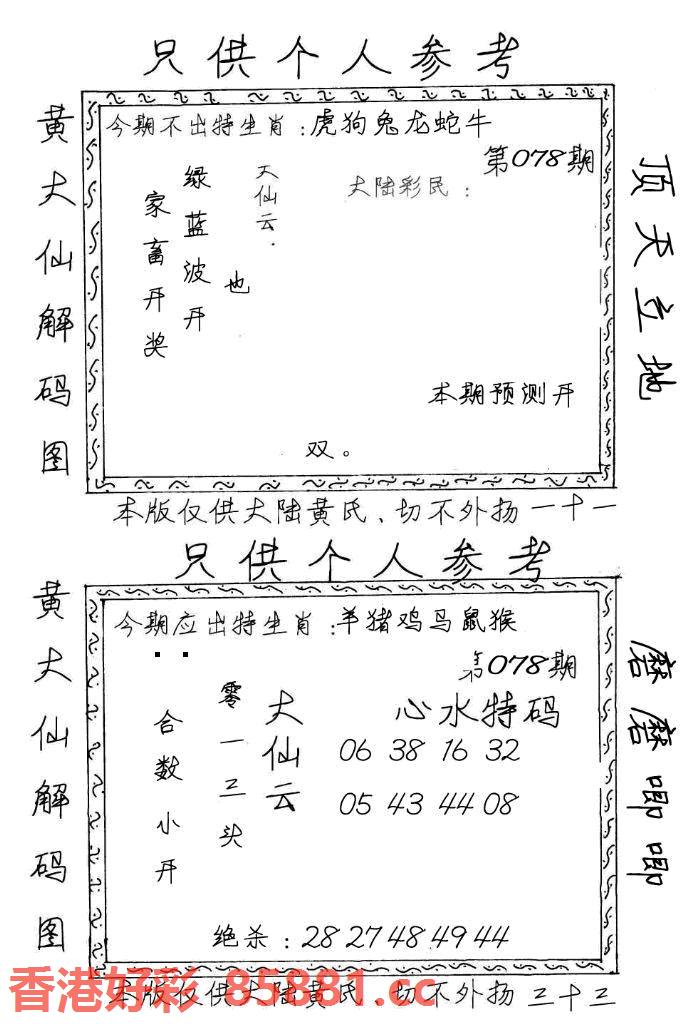 只供个人参考
黄大仙解码图
今期不出特生肖：虎狗兔龙蛇牛
第078期
大仙云．
大陆彩民：
绿蓝波开
家畜开奖
也
本期预测开
双。
顶天立地
本版仅供大陆黄氏、切不外扬一十一
只供个人参考
黄大仙解码图
今期应出特生肖：羊猪鸡马鼠猴
第078期
大仙云
零一三头
合数小开
心水特码
06 38 16 32
05 43 44 08
绝杀：28 27 48 49 44
磨磨唧唧
香港好彩 85881.cc
本版仅供大陆黄氏、切不外扬三十三